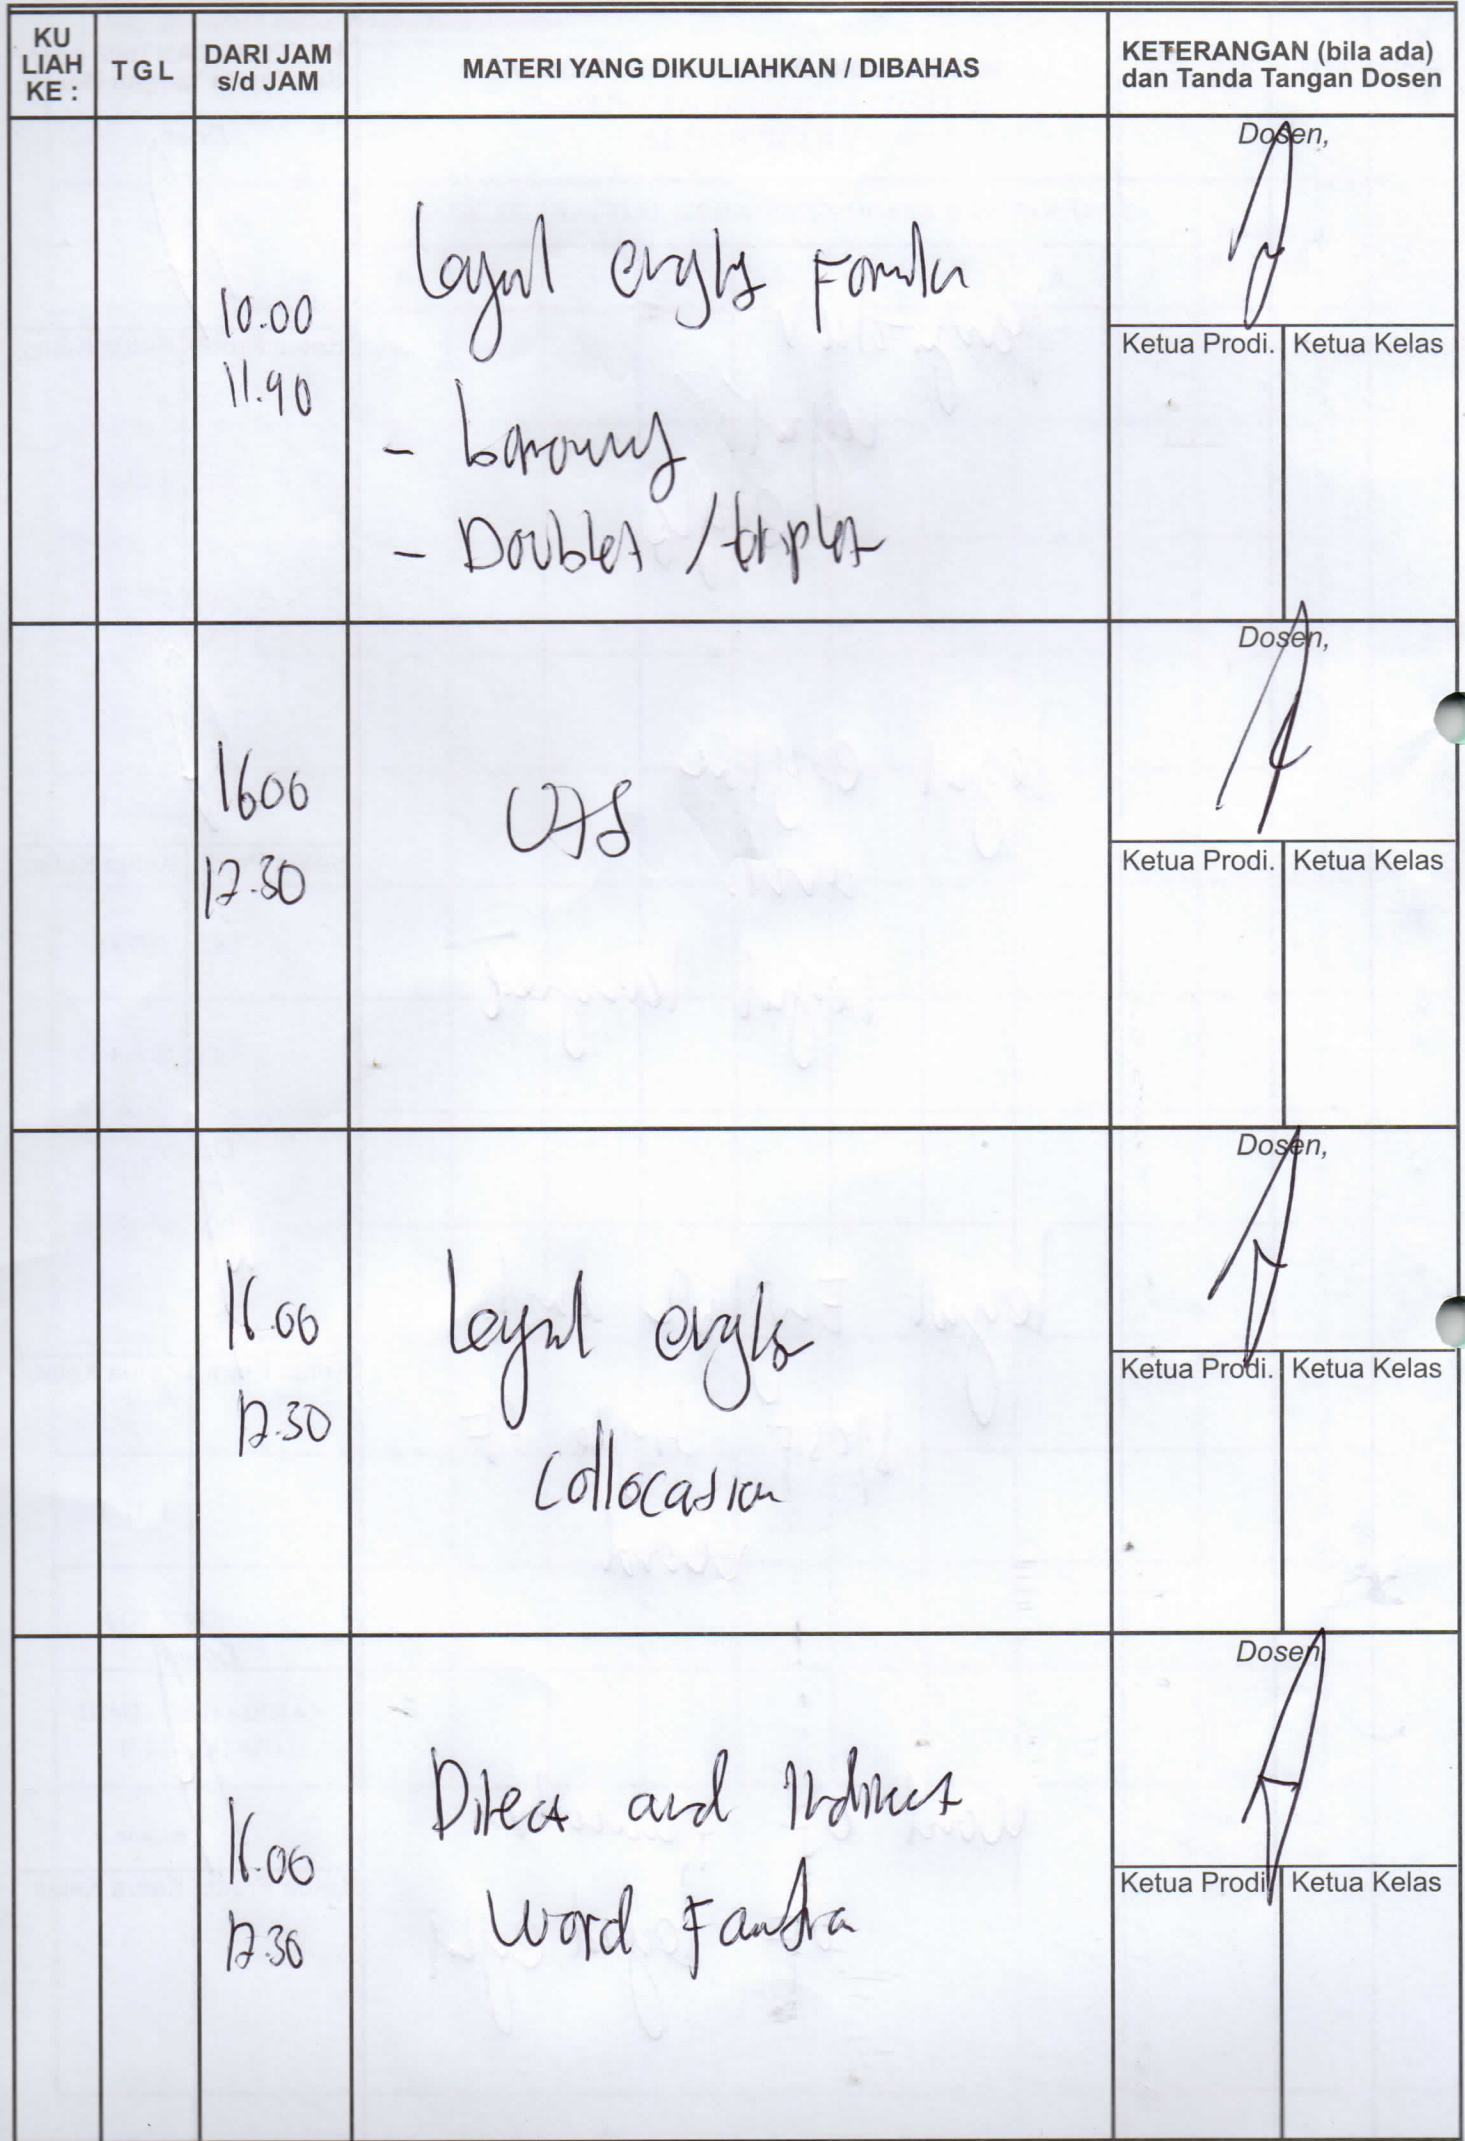 KU LIAH KE :
TGL
DARI JAM s/d JAM
MATERI YANG DIKULIAHKAN / DIBAHAS
KETERANGAN (bila ada) dan Tanda Tangan Dosen
10.00
11.40
Legal English
- Doublet / triplet
Dosen,
Ketua Prodi.
Ketua Kelas
16.00
17.30
UTS
Dosen,
Ketua Prodi.
Ketua Kelas
16.00
17.30
Legal English
Collocation
Dosen,
Ketua Prodi.
Ketua Kelas
16.00
17.30
Direct and Indirect
Word
Dosen,
Ketua Prodi.
Ketua Kelas